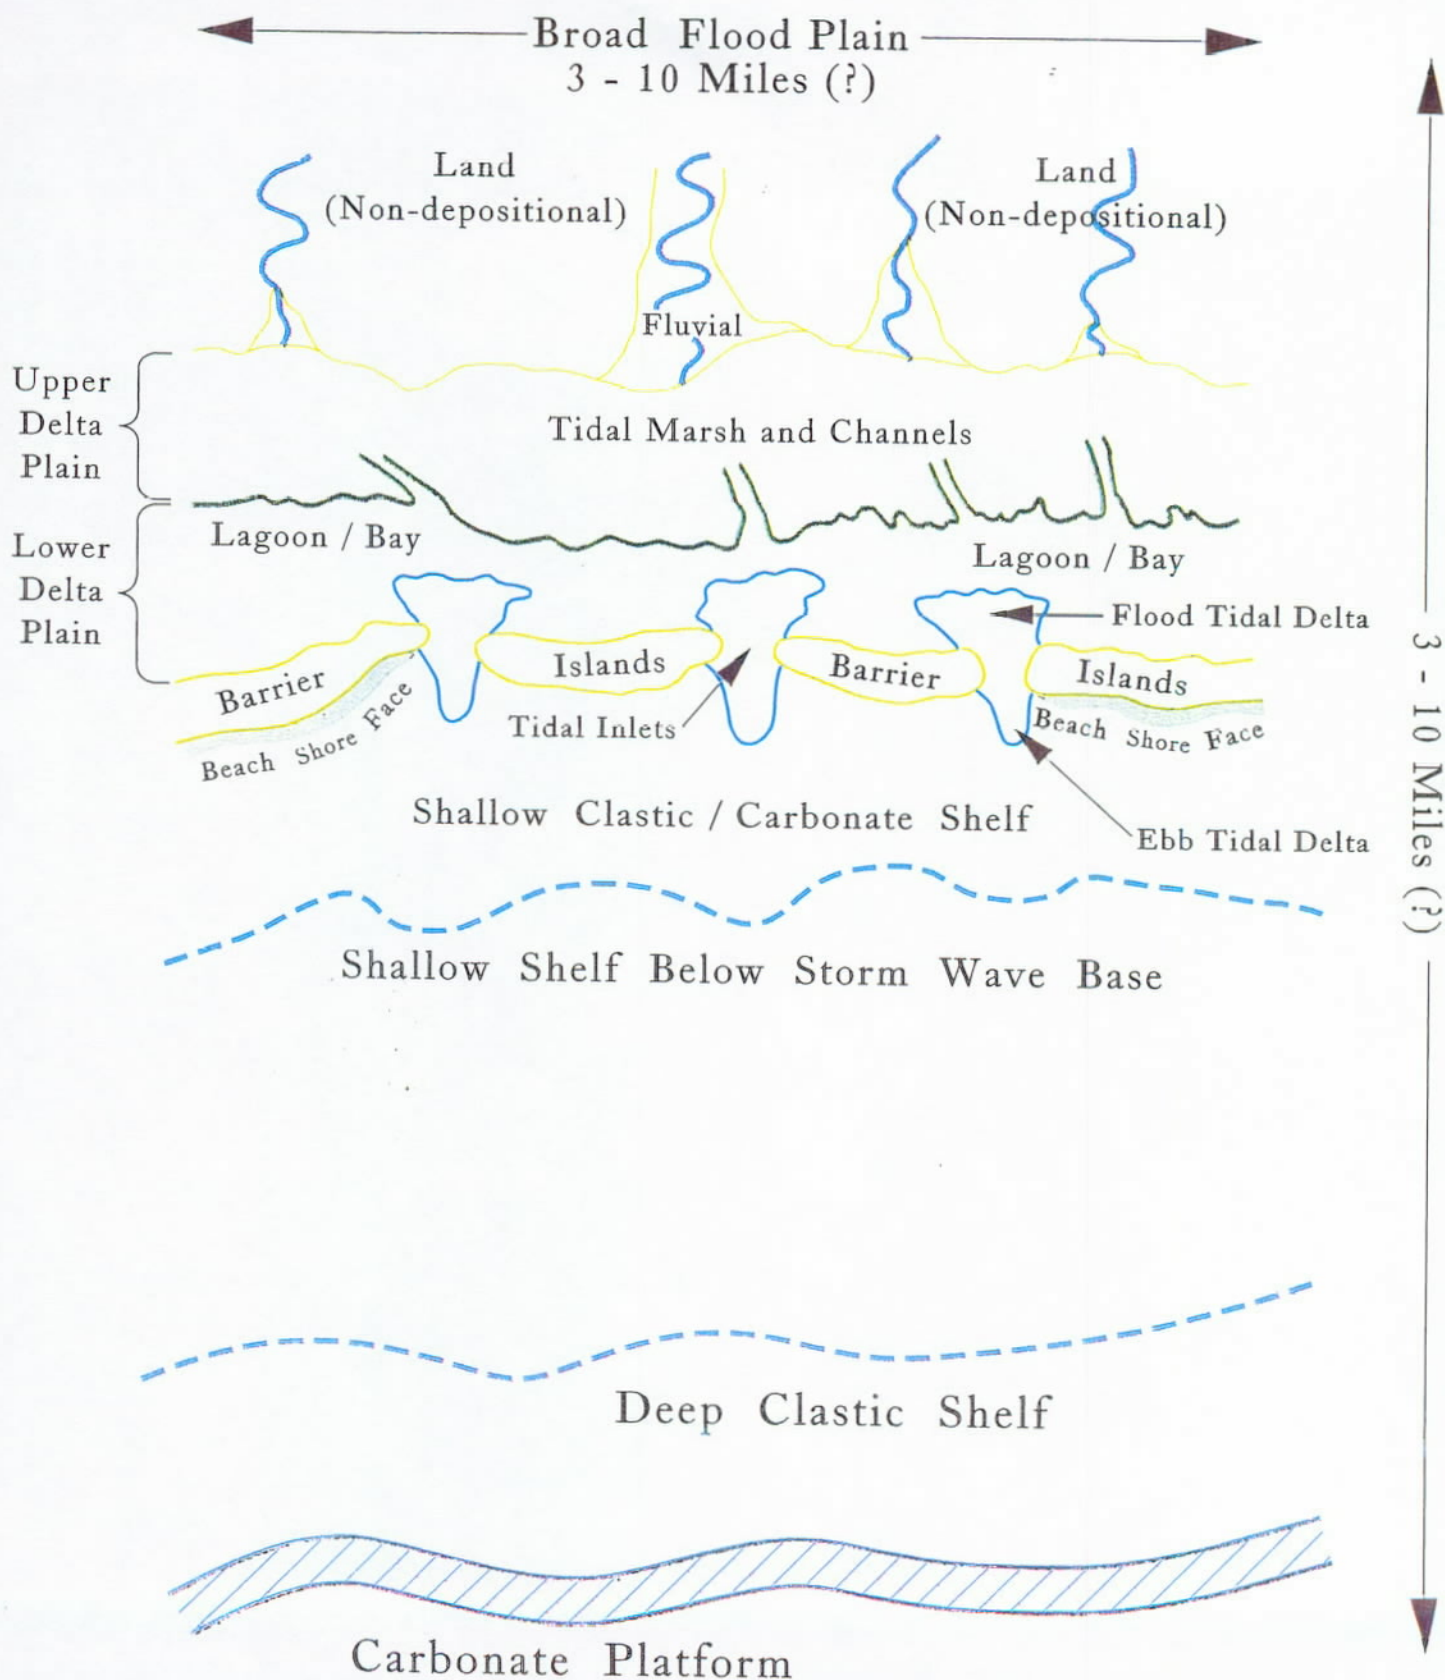 Broad Flood Plain
3 - 10 Miles (?)
Land
(Non-depositional)
Land
(Non-depositional)
Fluvial
Upper
Delta
Plain
Tidal Marsh and Channels
Lower
Delta
Plain
Lagoon / Bay
Lagoon / Bay
Flood Tidal Delta
Barrier
Islands
Barrier
Islands
Beach Shore Face
Tidal Inlets
Beach Shore Face
Shallow Clastic / Carbonate Shelf
Ebb Tidal Delta
3 - 10 Miles (?)
Shallow Shelf Below Storm Wave Base
Deep Clastic Shelf
Carbonate Platform